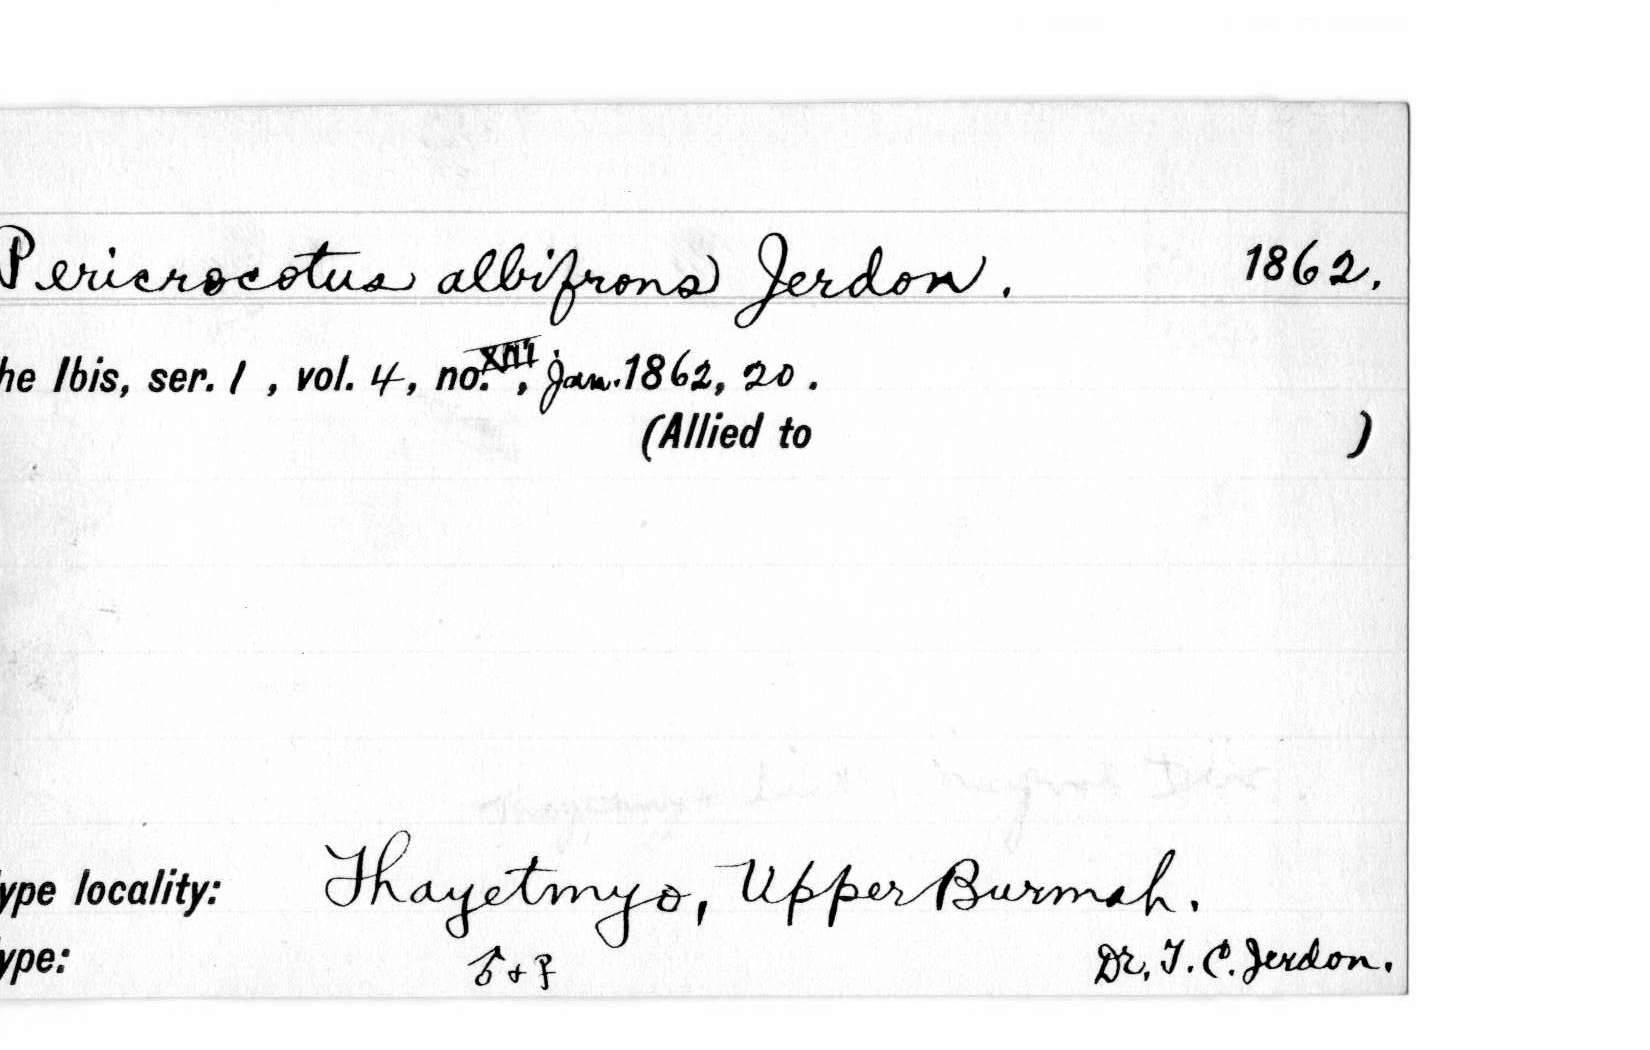 Pericrocotus albifrons Jerdon. 1862.
he Ibis, ser. 1 , vol. 4, no. XIII, Jan. 1862, 20 .
(Allied to )
ype locality: Thayetmyo, Upper Burmah.
ype: ♂ + ♀ Dr. T. C. Jerdon.